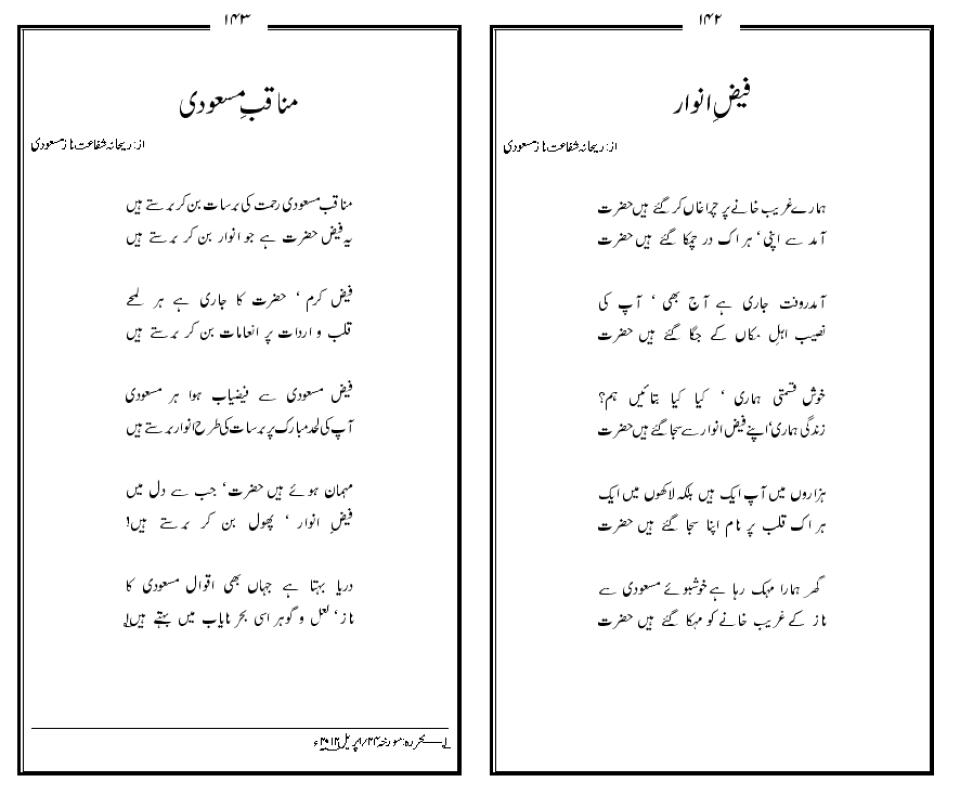 ۱۴۲
فیضِ انوار
از: ریحانہ شفاعت ناز مسعودی
ہمارے غریب خانے پر چراغاں کر گئے ہیں حضرت
آمد سے اپنی ‘ ہر اک در چمکا گئے ہیں حضرت
آمدورفت جاری ہے آج بھی ‘ آپ کی
نصیب اہلِ مکاں کے جگا گئے ہیں حضرت
خوش قسمتی ہماری ‘ کیا کیا بتائیں ہم؟
زندگی ہماری‘ اپنے فیض انوار سے سجا گئے ہیں حضرت
ہزاروں میں آپ ایک ہیں بلکہ لاکھوں میں ایک
ہر اک قلب پر نام اپنا سجا گئے ہیں حضرت
گھر ہمارا مہک رہا ہے خوشبوئے مسعودی سے
ناز کے غریب خانے کو مہکا گئے ہیں حضرت
۱۴۳
مناقبِ مسعودی
از: ریحانہ شفاعت ناز مسعودی
مناقب مسعودی رحمت کی برسات بن کر برستے ہیں
یہ فیض حضرت ہے جو انوار بن کر برستے ہیں
فیض کرم ‘ حضرت کا جاری ہے ہر لمحے
قلب و اردات پر انعامات بن کر برستے ہیں
فیض مسعودی سے فیضیاب ہوا ہر مسعودی
آپ کی لحد مبارک پر برسات کی طرح انوار برستے ہیں
مہمان ہوئے ہیں حضرت‘ جب سے دل میں
فیضِ انوار ‘ پھول بن کر برستے ہیں!
دریا بہتا ہے جہاں بھی اقوال مسعودی کا
ناز‘ لعل و گوہر اسی بحر نایاب میں بہتے ہیں۱
۱ـــــ محررہ: مورخہ ۲۴/اپریل ۲۰۱۲ء